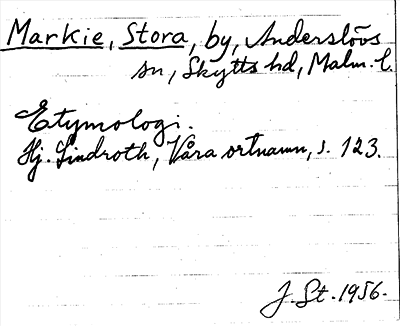 Markie, Stora, by, Anderslövs
sn, Skytts hd, Malm. l.
Etymologi.
Hj. Lindroth, Våra ortnamn, s. 123.
J. St. 1956.